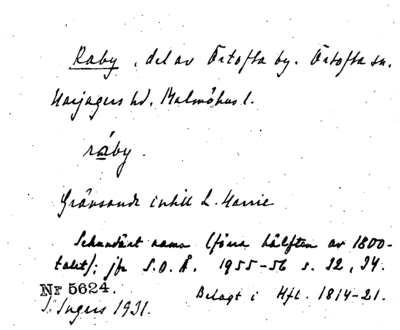 Råby, del av Örtofta by. Örtofta sn.
Harjagers hd. Malmöhus l.
råby.
Gränsande intill L. Harrie
Sekundärt namn (förra hälften av 1800-
talet); jfr S.O.Å. 1955-56 s. 32, 34.
Nr 5624. Belagt i Hfl. 1814-21.
S. Ingers 1931.